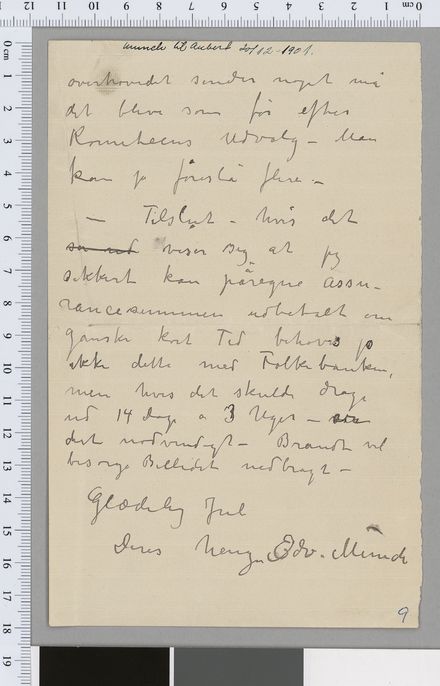 Munch til Aubert 20/12-1901.
overhovedet sendes noget må
det blive som før efter
Komiteens Udvalg – Man
kan jo foreslå flere –
– Tilslut – hvis det
ser ud viser sig at jeg
sikkert kan påregne Assu-
rancesummen udbetalt om
ganske kort Tid behøves jo
ikke dette med Folkebanken,
men hvis det skulde drage
ud 14 Dage a 3 Uger –
det nødvendigt – Brandt vil
besørge Billedet nedbragt –
Glædelig Jul
Deres hengivne Edv. Munch
9